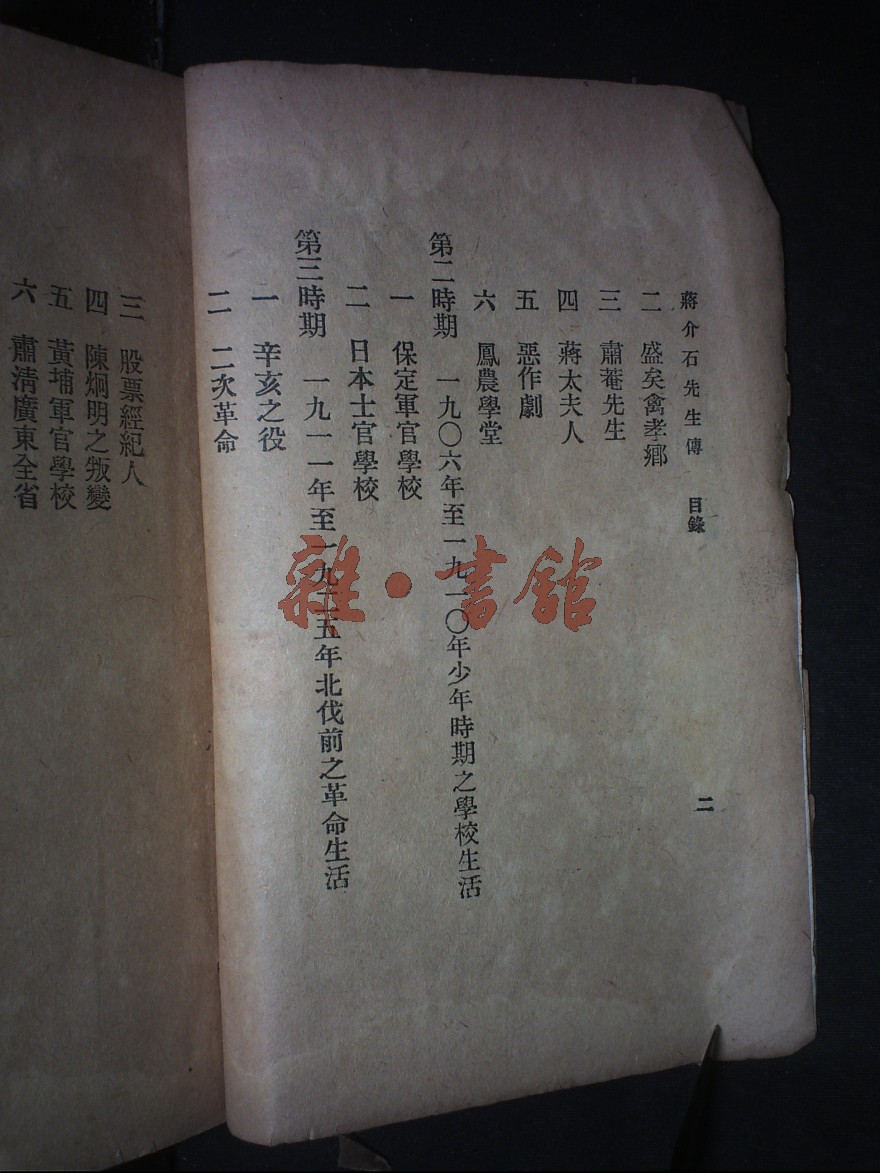 蔣介石先生傳 目錄 二
二 盛矣禽孝鄉
三 肅菴先生
四 蔣太夫人
五 惡作劇
六 鳳農學堂
第二時期 一九〇六年至一九一〇年少年時期之學校生活
一 保定軍官學校
二 日本士官學校
第三時期 一九一一年至一九二五年北伐前之革命生活
一 辛亥之役
二 二次革命
三 股票經紀人
四 陳炯明之叛變
五 黃埔軍官學校
六 肅清廣東全省
雜·書館